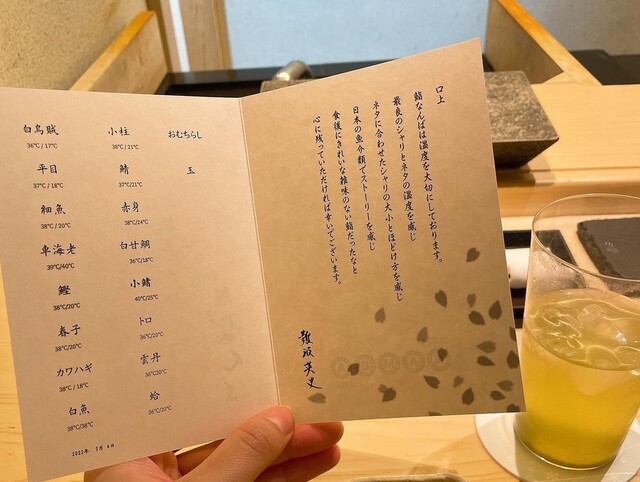 白烏賊
36℃ / 17℃
平目
37℃ / 18℃
細魚
38℃ / 20℃
車海老
39℃/40℃
鰹
38℃/20℃
春子
38℃/20℃
カワハギ
38℃ / 18℃
白魚
38℃/38℃
小柱
38℃ / 21℃
鯖
37℃/21℃
赤身
38℃/24℃
白甘鯛
36℃/18℃
小鰭
40℃/25℃
トロ
36℃/20℃
雲丹
36℃20℃
蛤
36℃/20℃
おむちらし
玉
口上
鮨なんばは温度を大切にしております。
最良のシャリとネタの温度を感じ
ネタに合わせたシャリの大小とほどけ方を感じ
日本の魚介類でストーリーを感じ
食後にきれいな雑味のない鮨だったなと
心に残っていただければ幸いでございます。
難波英史